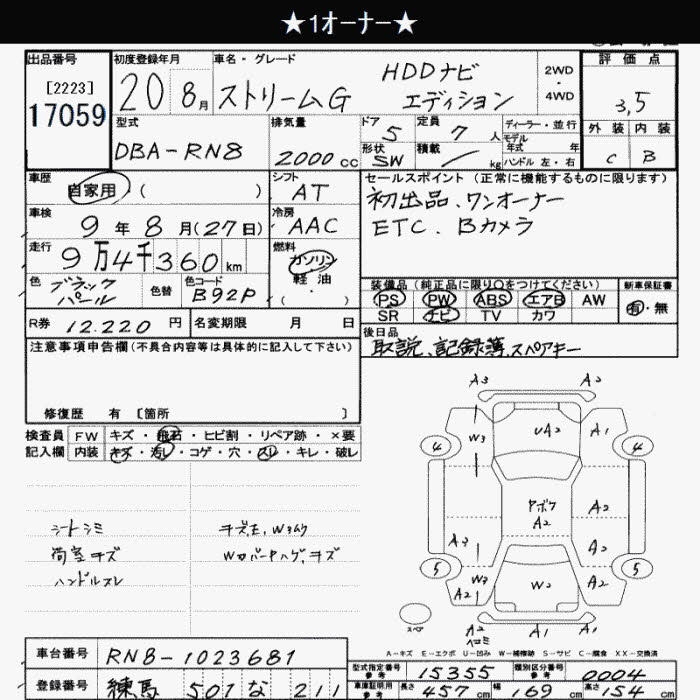 ★1ｵｰﾅｰ★
出品番号
[2223]
17059
初度登録年月
20 8月
車名・グレード
ストリームG
HDDナビ
エディション
2WD
・
4WD
評価点
3.5
外装 内装
C B
型式
DBA-RN8
排気量
2000cc
ドア
5
定員
7人
形状
SW
積載
kg
ディーラー・並行
モデル
年式 年
ハンドル 左・右
車歴
自家用 ( )
シフト
AT
セールスポイント (正常に機能するものに限ります)
初出品、ワンオーナー
ETC、Bカメラ
車検
9年8月(27日)
冷房
AAC
走行
9万4千360km
燃料
ガソリン
軽油
・
( )
色
ブラック
パール
色替
色コード
B92P
装備品 (純正品に限り○をつけてください)
PS PW ABS エアB AW
SR ナビ TV カワ
新車保証書
有・無
R券 12.220円
名変期限 月 日
後日品
取説、記録簿、スペアキー
注意事項申告欄(不具合内容等は具体的に記入して下さい)
修復歴 有 [箇所 ]
検査員
記入欄
FW キズ・飛石・ヒビ割・リペア跡・×要
内装 キズ・汚レ・コゲ・穴・スレ・キレ・破レ
シートシミ
荷室キズ
ハンドルスレ
A3 A2
W3 UA2 A1
4 4
Pボケ
A2
A2
A3 A2
5 5
W3 W2 A2
A2
スペア
A2 A1 A1
ヘコミ
A-キズ E-エクボ U-凹み W-補修跡 S-サビ C-腐食 XX-交換済
車台番号 RN8-1023681
登録番号 練馬 501 な 211
型式指定番号
参考
15355
類別区分番号
参考
0004
車庫証明用
参考
長さ 457cm 幅 169cm 高さ 154cm